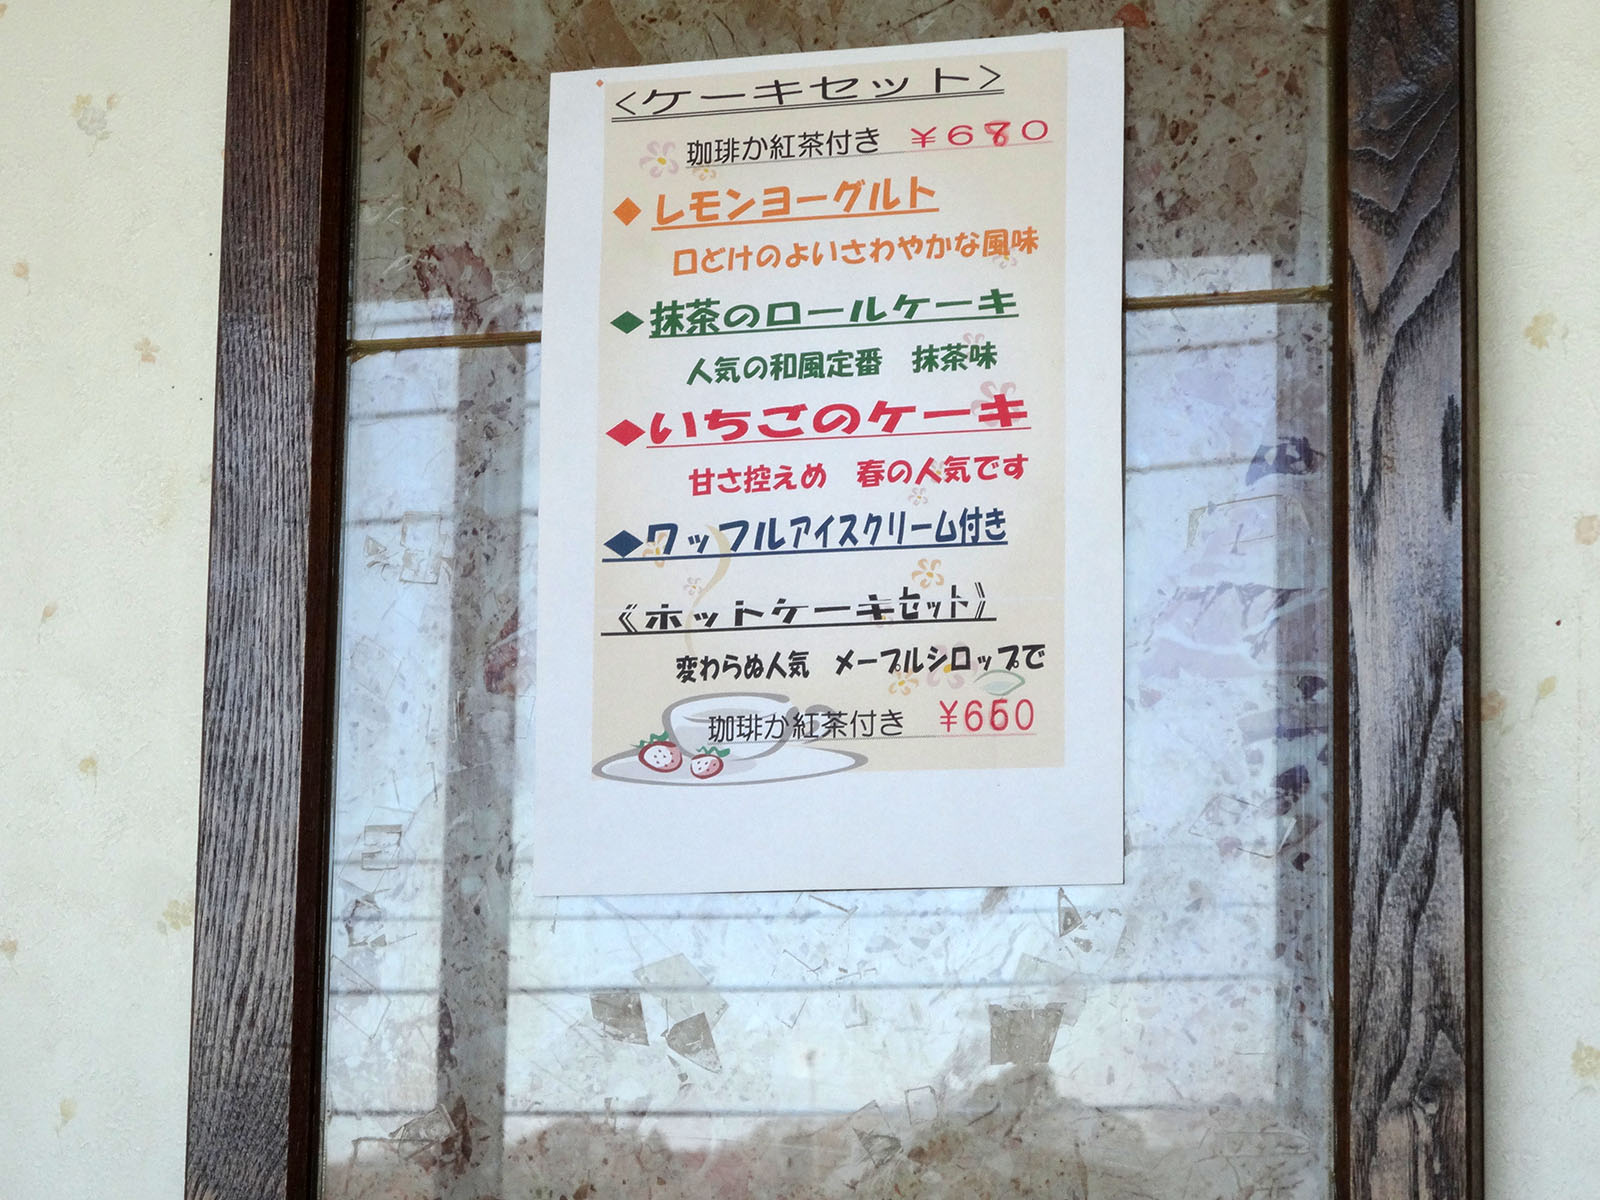 <ケーキセット>
珈琲か紅茶付き ¥680
◆レモンヨーグルト
口どけのよいさわやかな風味
◆抹茶のロールケーキ
人気の和風定番 抹茶味
◆いちごのケーキ
甘さ控えめ 春の人気です
◆ワッフルアイスクリーム付き
《ホットケーキセット》
変わらぬ人気 メープルシロップで
珈琲か紅茶付き ¥650